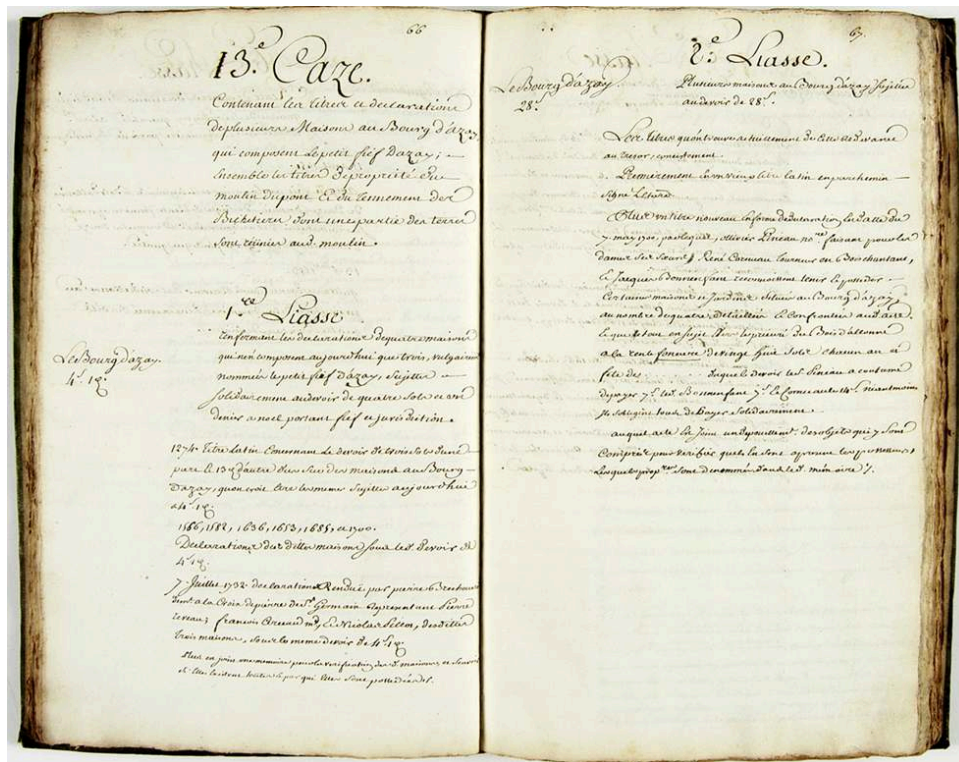 66
13.e Caze.
Contenant les titres et declarations
de plusieurs Maisons au Bourg d'azay
qui composent le petit fief Dazay; —
Ensemble les titres de proprieté du
moulin dupont Et du tennement des
dont une partie des terres
sont reunies aud. moulin.
1.re Liasse
Le Bourg dazay.
4s. 1d.
renfermant les declarations de quatre maisons
qui n'en composent aujourdhui que trois, vulgairement
nommées le petit fief Dazay, Sujettes —
Solidairement au devoir de quatre sols et un
denier a noel portant fief et jurisdiction.
1274. titre latin contenant le devoir de trois sols
par le 13 d'autre deus sur des maisons au Bourg
Dazay, qu'on croit etre les memes Sujettes aujourdhuÿ
a 4s. 1d.
1566, 1582, 1636, 1653, 1685, et 1700.
Declarations des dittes maisons sous led. Devoir de
4s. 1d.
7. Juillet 1732. declaration Rendüe par pierre
a la Croix de pierre de St. Germain Representant Pierre
francois md, Et Nicolas desdittes
trois maisons, sous le meme devoir de 4s. 1d.
Plus en joint un memoire pour la verification des d. maisons, et Scavoir
par qui elles sont possedées.
67.
2.e Liasse.
Le Bourg d'azay.
28s.
Plusieurs maisons au Bourg dazay Sujettes
au devoir de 28s.
Les titres qu'on trouve actuellement de cette redevance
au tresor, consistement
Premierement en un vieux titre latin en parchemin —
Signé
Plus un titre nouveau en forme de declaration, En datte du
7. may 1700, par lequel, ollivier Pineau no.re faisant pour les
dames ses Sœurs, René Carneau tourneur en Bois chantant,
& Jacques Bonnenfant reconnaissent tenir & posseder —
Certaines maisons et Jardins Situés au Bourg d'azay,
au nombre de quatre, detaillées & Confrontées aud. acte,
le que tout en Sujet vers le prieuré du Bois d'allonne
a la rente fonciere de vingt huit sols chacun an a
fete de laquelle devoir led. Pineau a coutume
de payer 7s. led. Bonnenfant 7s. le Corneau le 14s. Neantmoins
Ils s'obligent tous de Payer Solidairement.
auquel acte Est Joint un depouillement des objets qui y sont
Compris pour verifier quels ils sont
lesquels prop.res sont denommés dans led. memoire %.